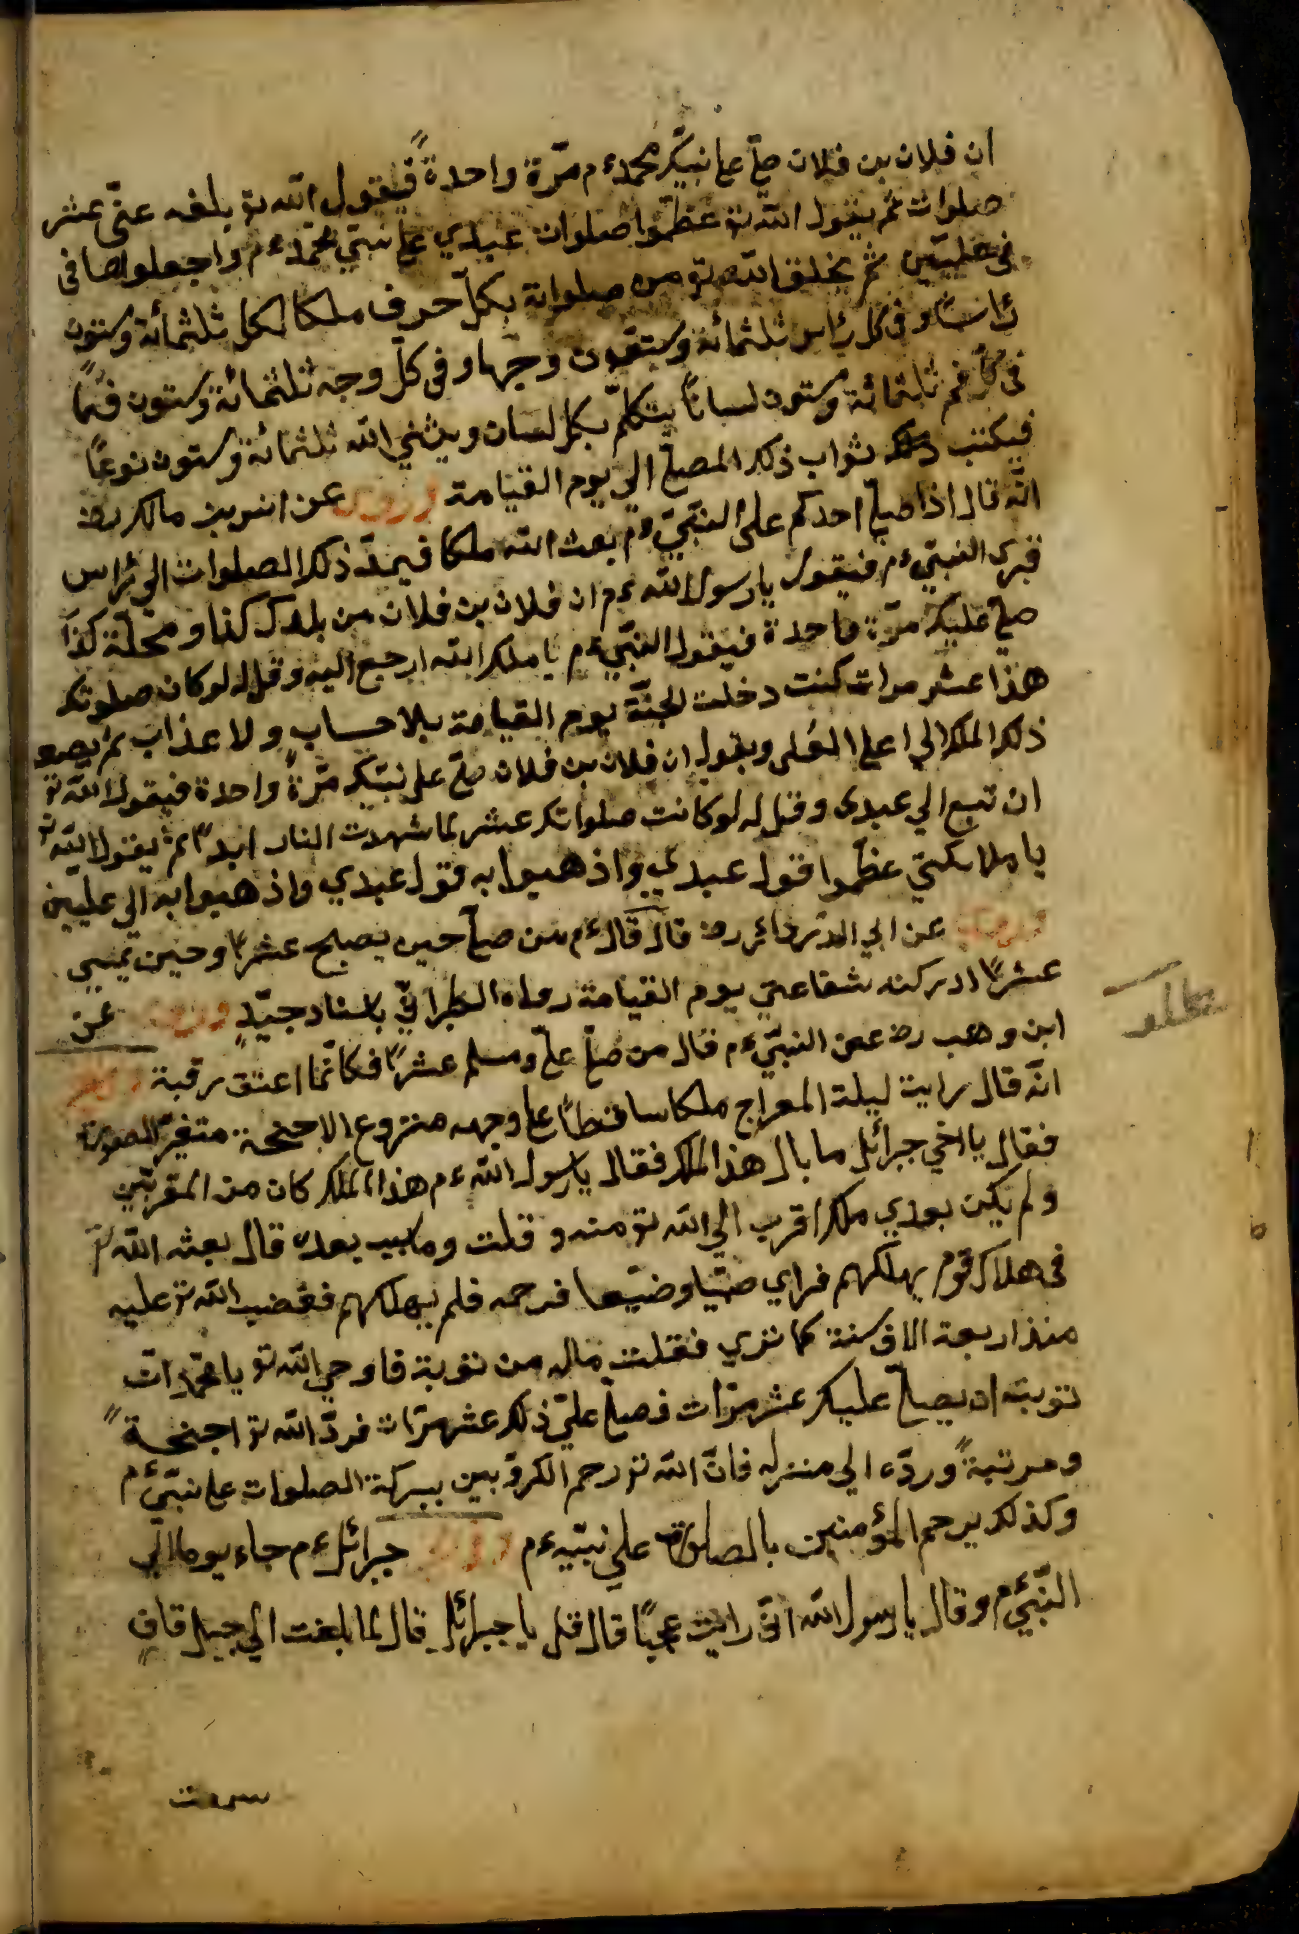 ان فلان بن فلان صلّ على نبيّك محمد ءم مرّة واحدةً فيقول الله تو بلغه عنّي عشر
صلوات ثم يقول الله تو عظّموا صلوات عبدي على نبيّ محمّد ءم واجعلواها في
في عليّين ثم يخلق الله تو من صلواته بكلّ حرف ملكا لكل ثلثمائة وستون
رٔاسًا وفي كل رٔاس ثلثمائة وستون وجها وفي كلّ وجه ثلثمائة وستون فمًا
في كل فم ثلثمائة وستون لسانًا يتكلّم بكل لسان ويثني الله ثلثمائة وستون نوعًا
فيكتب ثواب ذلك المصلّ الي يوم القيامة وروي عن انس بن مالك رض
انّه قال اذا صلّ احدكم على النبيّ ءم بعث الله ملكا فيمدّ ذلك الصلوات الي رٔاس
قبري النبيّ ءم فيقول يا رسول الله ءم ان فلان بن فلان من بلدك كذا ومحلّة كذا
صلّ عليك مرّة واحدة فيقول النبيّ ءم يا ملك الله ارجع اليه وقل له لوكان صلوتك
هذا عشر مرات كنت دخلت الجنّة يوم القيامة بلا حساب ولا عذاب ثم يصعد
ذلك الملك الي اعلي العُلى ويقول ان فلان بن فلان صلّ على نبيّك مرّةً واحدة فيقول الله تو
ان تبع الي عبدى وقل له لوكانت صلواتك عشر لما شهدت النار ابدًا ثم يقول الله تو
يا ملائكتي عظّموا قول عبدي واذهبوا به قول عبدي واذهبوا به الي عليين
وروي عن ابي الدّردائر رض قال قال ءم من صلّ حين يصبح عشرًا وحين يمسي
عشرًا ادركته شفاعتي يوم القيامة رواه الطبرانيّ باسناد جيّدٍ وروي عن
ابن وهب رض عن النبيّ ءم قال من صلّ علىّ وسلم عشرًا فكانّما اعتق رقبة
انّه قال رايت ليلة المعراج ملكا ساقطًا على وجهه منزوع الاجنحة متغيّر الصورة
فقال يا اخي جبرائل ما بال هذا الملك فقال يا رسول الله ءم هذا الملك كان من المقربّين
ولم يكن بعدي ملكا اقرب الي الله تو منه و قلت وما سبب بعده قال بعثه الله تو
في هلاك قوم يهلكهم فراي صبّيا وضيّعا فرحمه فلم يهلكهم فغضب الله تو عليه
منذ اربعة الاف سنة كما تري فقلت ماله من توبة فاوحي الله تو يا محمّد انّ
توبته ان يصلّ عليك عشر مرّات فصلّ عليّ ذلك عشر مرّات فردّ الله تو اجنحةً
ومرتبةً وردّه الي منزله فانّ الله تو رحم الكروّبين ببركة الصلوات على نبيّ ءم
وكذلك يرحم المؤمنين بالصلوة على نبيّه ءم وروي جبرائل ءم جاء يوما الي
النّبيّ ءم وقال يا رسول الله انّي رايت عجبًا قال قل يا جبرائل قال لما بلغت الي جبل قافٍ